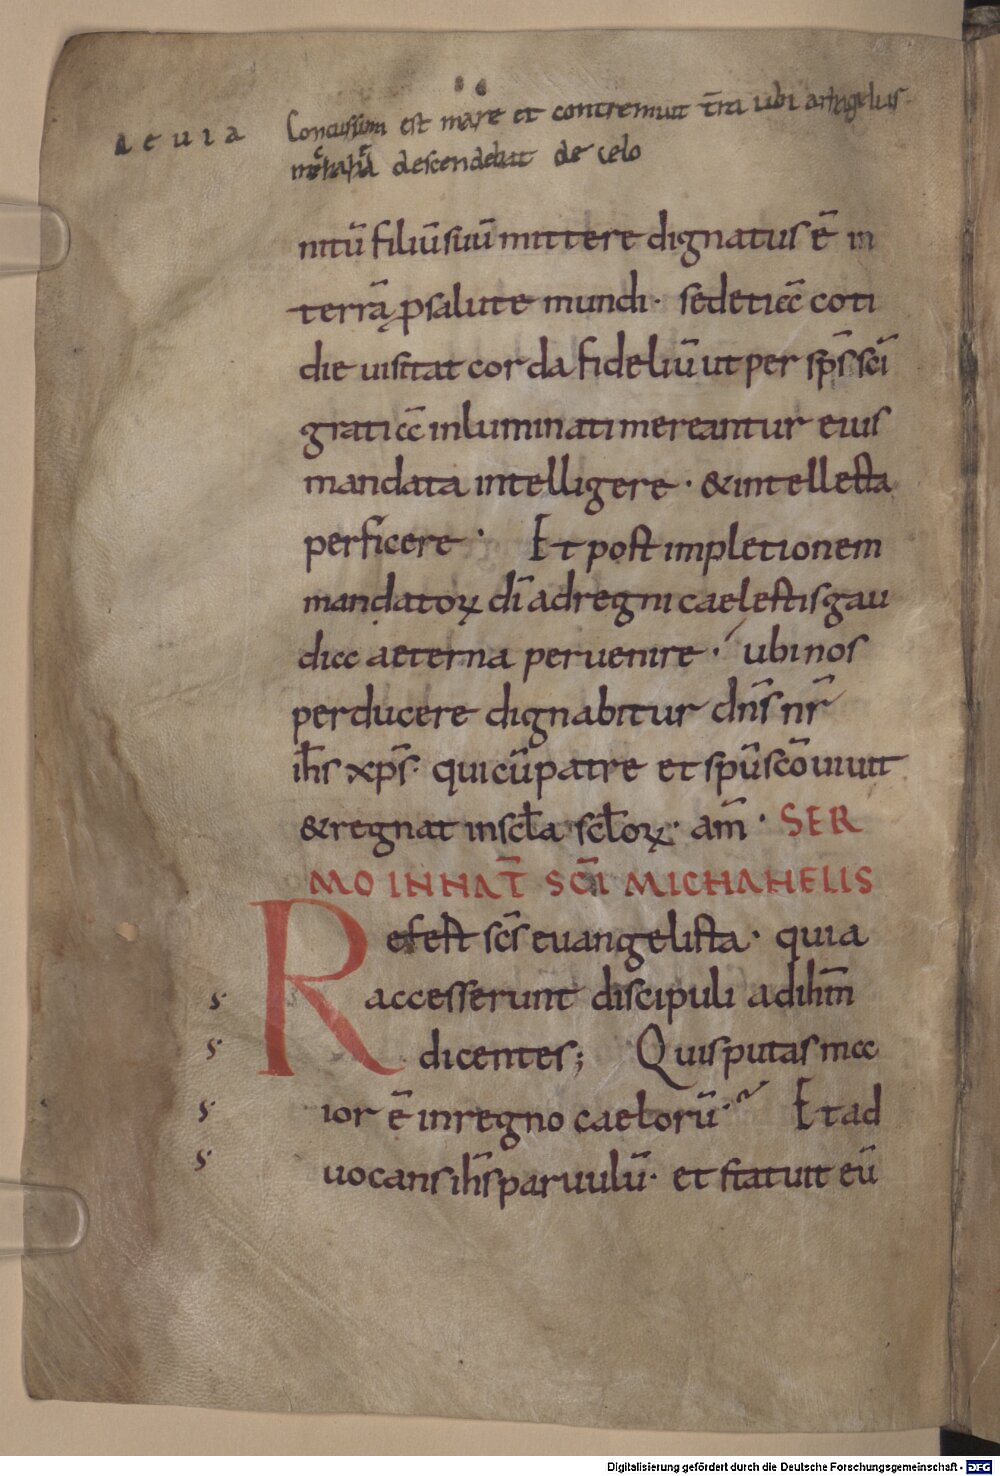 aeuia Concussum est mare et contremuit t̄ra ubi archagelus
descendebat de celo
nitū filiū suū mittere dignatus ē in
terrā ꝓ salute mundi · sed et icc coti
die uisitat corda fideliū ut per sp̄s sc̄i
graticc inluminati mereantur eius
mandata intelligere · & intellecta
perficere · Et post impletionem
mandatoꝝ dī ad regni caelestis gau
dicc aeterna peruenire · ubi nos
perducere dignabitur dn̄s nr̄
ih̄s xp̄s · qui cū patre et spū scō uiuit
& regnat in scl̄a scl̄oꝝ · am̄ · SER
MO IN NAT̄ SC̄I MICHAHELIS
Refest sc̄s euangelista · quia
accesserunt discipuli ad ih̄m
dicentes; Quis putas mcc
ior ē in regno caelorū · Et ad
uocans ih̄s paruulū · et statuit eū
s
s
s
s
Digitalisierung gefördert durch die Deutsche Forschungsgemeinschaft - DFG